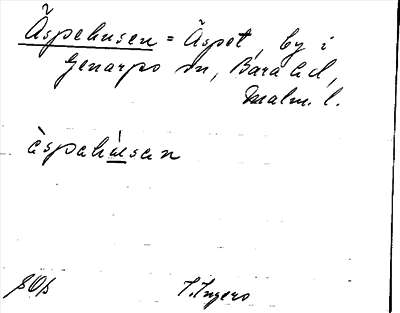 Äspehusen = Äspet, by i
Genarps sn, Bara hd,
Malm. l.
àspahùsan
J. Ingers